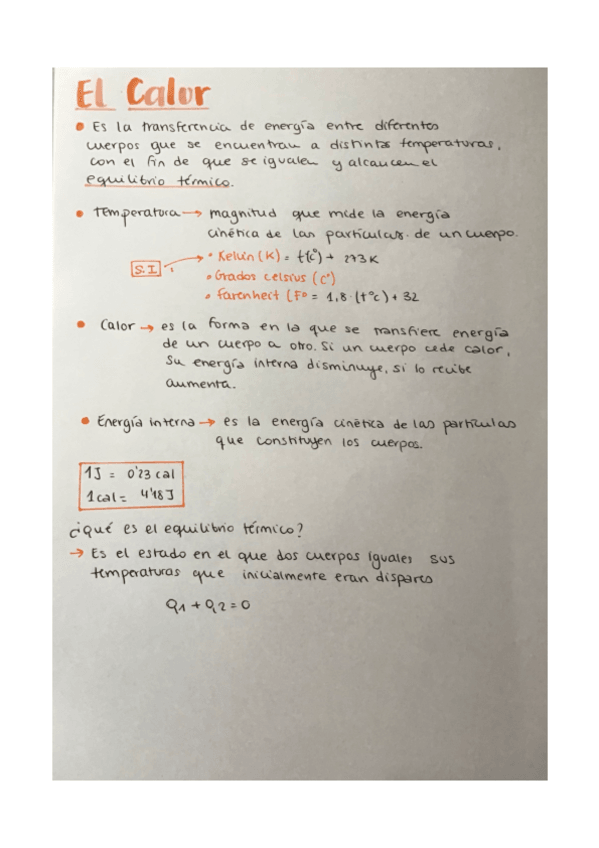 El Calor
• Es la transferencia de energía entre diferentes
cuerpos que se encuentran a distintas temperaturas,
con el fin de que se igualen y alcancen el
equilibrio térmico.
• Temperatura → magnitud que mide la energía
cinética de las partículas de un cuerpo.
S.I → • Kelvin (K) = t(c°) + 273K
• Grados celsius (c°)
• Farenheit (F° = 1,8 · (t°c) + 32
• Calor → es la forma en la que se transfiere energía
de un cuerpo a otro. Si un cuerpo cede calor,
su energía interna disminuye, si lo recibe
aumenta.
• Energía interna → es la energía cinética de las partículas
que constituyen los cuerpos.
1J = 0'23 cal
1cal = 4'18J
¿Qué es el equilibrio térmico?
→ Es el estado en el que dos cuerpos iguales sus
temperaturas que inicialmente eran dispares
Q1 + Q2 = 0